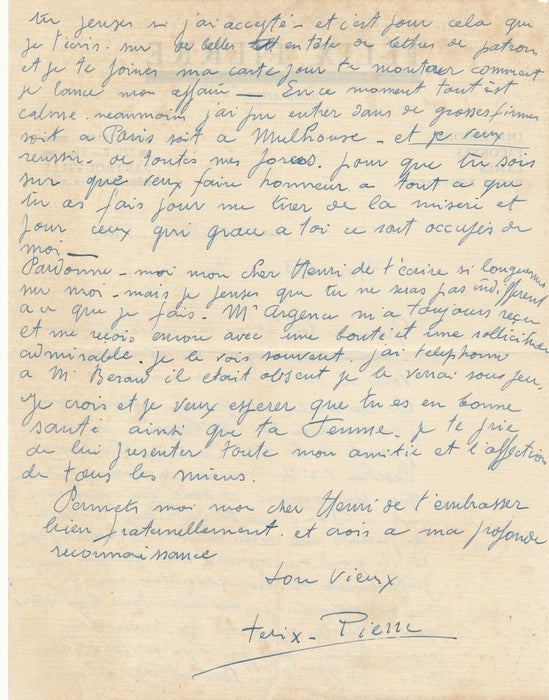 tu penses si j'ai accepté - et c'est pour cela que
je t'ecris. sur de belles en tête de lettres de patron
et je te joins ma carte pour te montrer comment
je lance mon affaire - En ce moment tout est
calme. neanmoins j'ai pu entrer dans de grosses firmes
soit a Paris soit a Mulhouse - et je veux
reussir - de toutes mes forces. pour que tu sois
sur que veux faire honneur a tout ce que
tu as fais pour me tirer de la misere et
pour ceux qui grace a toi ce sont occupés de
moi -
Pardonne - moi mon cher Henri de t'ecrire si longuement
sur moi - mais je penses que tu ne seras pas indifferent
a ce que je fais. Mr Argence m'a toujours reçu
et me reçois encore avec une bonté et une sollicitude
admirable. je le vois souvent. j'ai telephoné
a Mr Beraud il etait absent je le verrai sous peu.
Je crois et je veux esperer que tu es en bonne
santé ainsi que ta femme. je te prie
de lui presenter toute mon amitie et l'affection
de tous les miens.
Permets moi mon cher Henri de t'embrasser
bien fraternellement. et crois a ma profonde
reconnaissance
ton vieux
Felix - Pierre